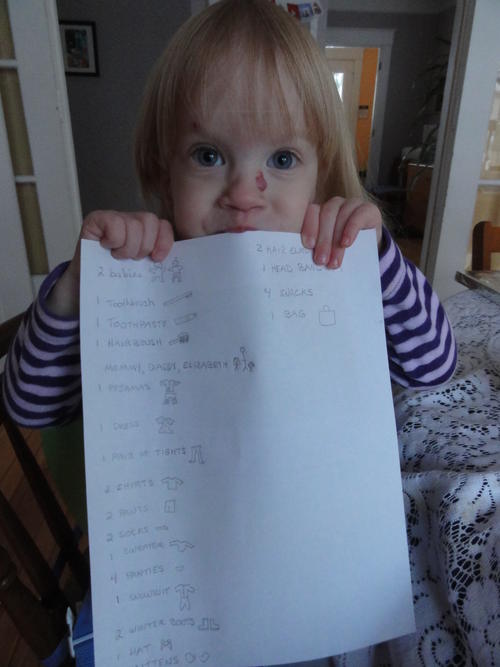 2 babies
1 Toothbrush
1 TOOTHPASTE
1 HAIRBRUSH
MOMMY, DADDY, ELIZABETH
1 PYJAMAS
1 DRESS
1 PAIR OF TIGHTS
2 SHIRTS
2 PANTS
2 SOCKS
1 SWEATER
4 PANTIES
1 SNOWSUIT
2 WINTER BOOTS
1 HAT
MITTENS
2 HAIR
1 HEAD
4 SNACKS
1 BAG